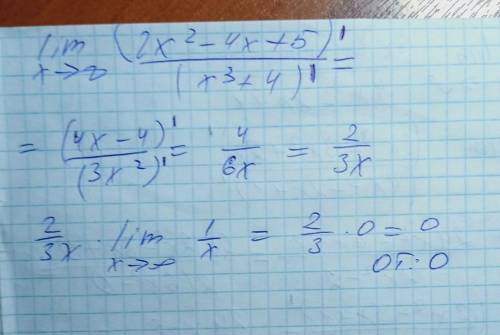 lim x→∞ (2x² - 4x + 5)' / (x³ + 4)' =
= (4x - 4)' / (3x²)' = 4 / 6x = 2 / 3x
2 / 3x · lim x→∞ 1 / x = 2 / 3 · 0 = 0
ОТ: 0